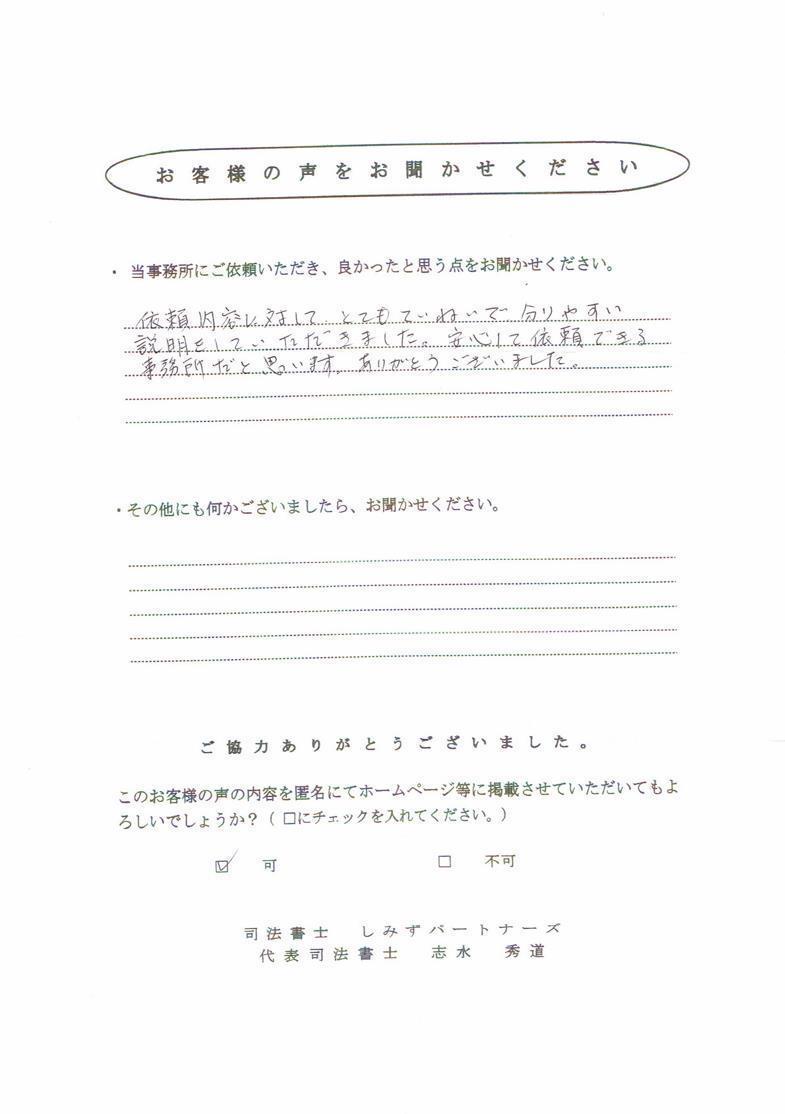 お客様の声をお聞かせください
・ 当事務所にご依頼いただき、良かったと思う点をお聞かせください。
依頼内容に対して とてもていねいで 分りやすい
説明をしていただきました。安心して依頼できる
事務所だと思います。ありがとうございました。
・その他にも何かございましたら、お聞かせください。
ご協力ありがとうございました。
このお客様の声の内容を匿名にてホームページ等に掲載させていただいてもよ
ろしいでしょうか？（ □にチェックを入れてください。）
☑ 可 □ 不可
司法書士 しみずパートナーズ
代表司法書士 志水 秀道